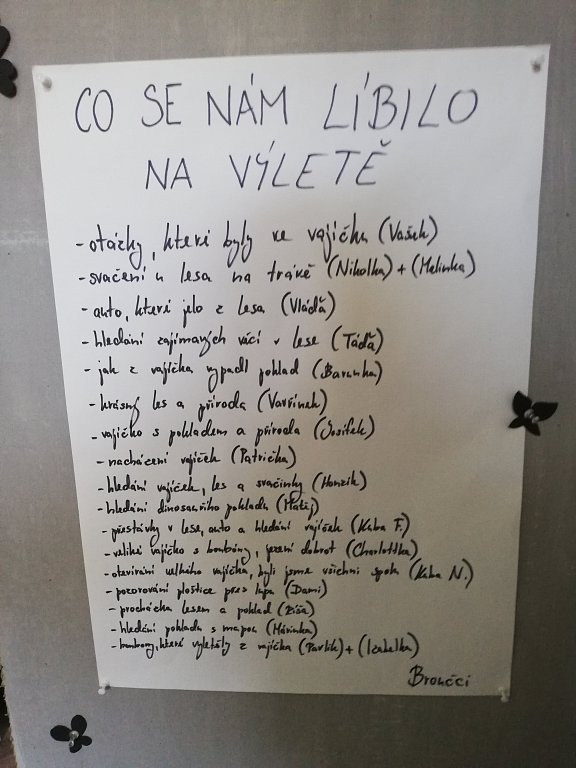 CO SE NÁM LÍBILO
NA VÝLETĚ
- otázky, které byly ve vajíčku (Vašek)
- svačení u lesa na trávě (Nikolka) + (Melinka)
- auto, které jelo z lesa (Vláďa)
- hledání zajímavých věcí v lese (Táďa)
- jak z vajíčka vypadl poklad (Barunka)
- krásný les a příroda (Vavřínek)
- vajíčko s pokladem a příroda (Josífek)
- nacházení vajíček (Patrička)
- hledání vajíček, les a svačinky (Honzík)
- hledání dinosauřího pokladu (Matěj)
- přestávky v lese, auto a hledání vajíček (Kuba F.)
- veliké vajíčko s bonbóny, jezení dobrot (Charlottka)
- otevírání velkého vajíčka, byli jsme všichni spolu (Kuba N.)
- pozorování ploštice přes lupu (Dami)
- procházka lesem a poklad (Ríša)
- hledání pokladu s mapou (Márinka)
- bonbony, které vyletěly z vajíčka (Pavlík) + (Izabelka)
Broučci